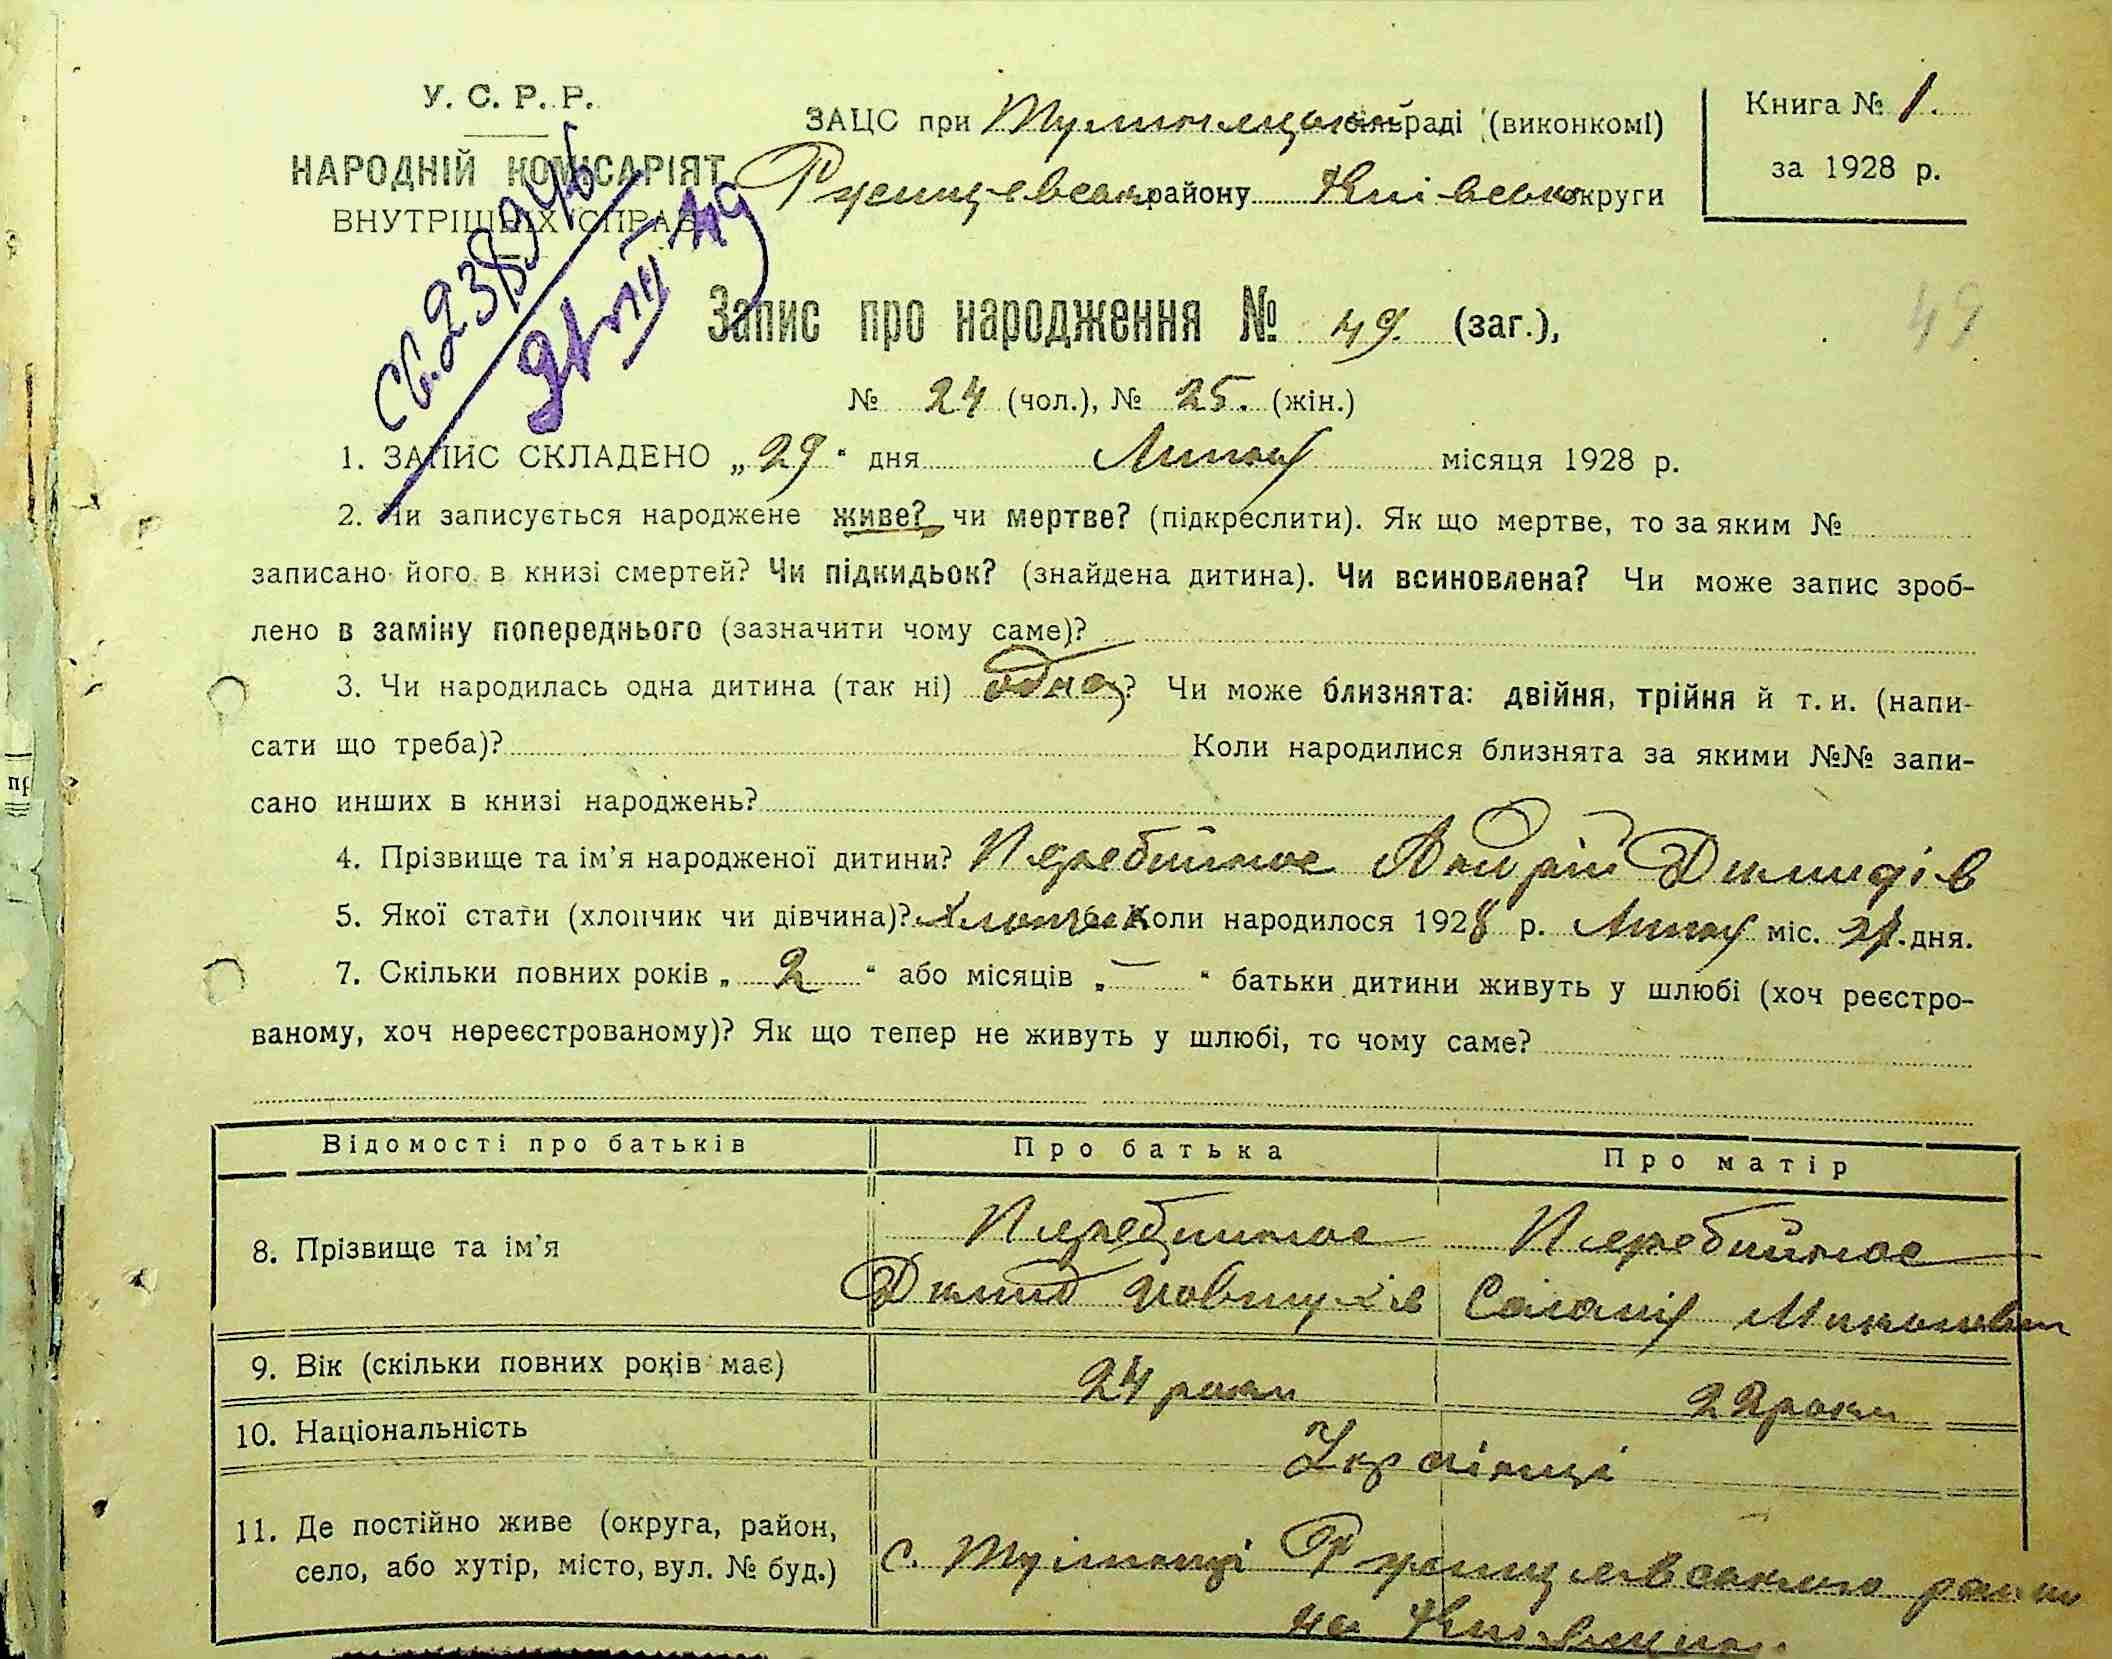 У. С. Р. Р.
НАРОДНІЙ КОМІСАРІЯТ
ВНУТРІШНІХ СПРАВ
ЗАЦС при сільраді (виконкомі)
району Київської округи
Книга № 1.
за 1928 р.
Запис про народження № 49. (заг.),
49
№ 24 (чол.), № 25. (жін.)
1. ЗАПИС СКЛАДЕНО „29“ дня Липня місяця 1928 р.
2. Чи записується народжене живе? чи мертве? (підкреслити). Як що мертве, то за яким №
записано його в книзі смертей? Чи підкидьок? (знайдена дитина). Чи всиновлена? Чи може запис зроб-
лено в заміну попереднього (зазначити чому саме)?
3. Чи народилась одна дитина (так ні) одна? Чи може близнята: двійня, трійня й т. и. (напи-
сати що треба)? Коли народилися близнята за якими №№ запи-
сано инших в книзі народжень?
4. Прізвище та ім'я народженої дитини? Перебийнос Андрій Димидів
5. Якої стати (хлопчик чи дівчина)? Хлопчик Коли народилося 1928 р. Липня міс. дня.
7. Скільки повних років „ 2 “ або місяців „ — “ батьки дитини живуть у шлюбі (хоч реєстро-
ваному, хоч нереєстрованому)? Як що тепер не живуть у шлюбі, то чому саме?
Відомості про батьків Про батька Про матір
8. Прізвище та ім'я Перебийнос Перебийнос
Димид
9. Вік (скільки повних років має) 24 роки 22 роки
10. Національність Українці
11. Де постійно живе (округа, район,
село, або хутір, місто, вул. № буд.) с.
на